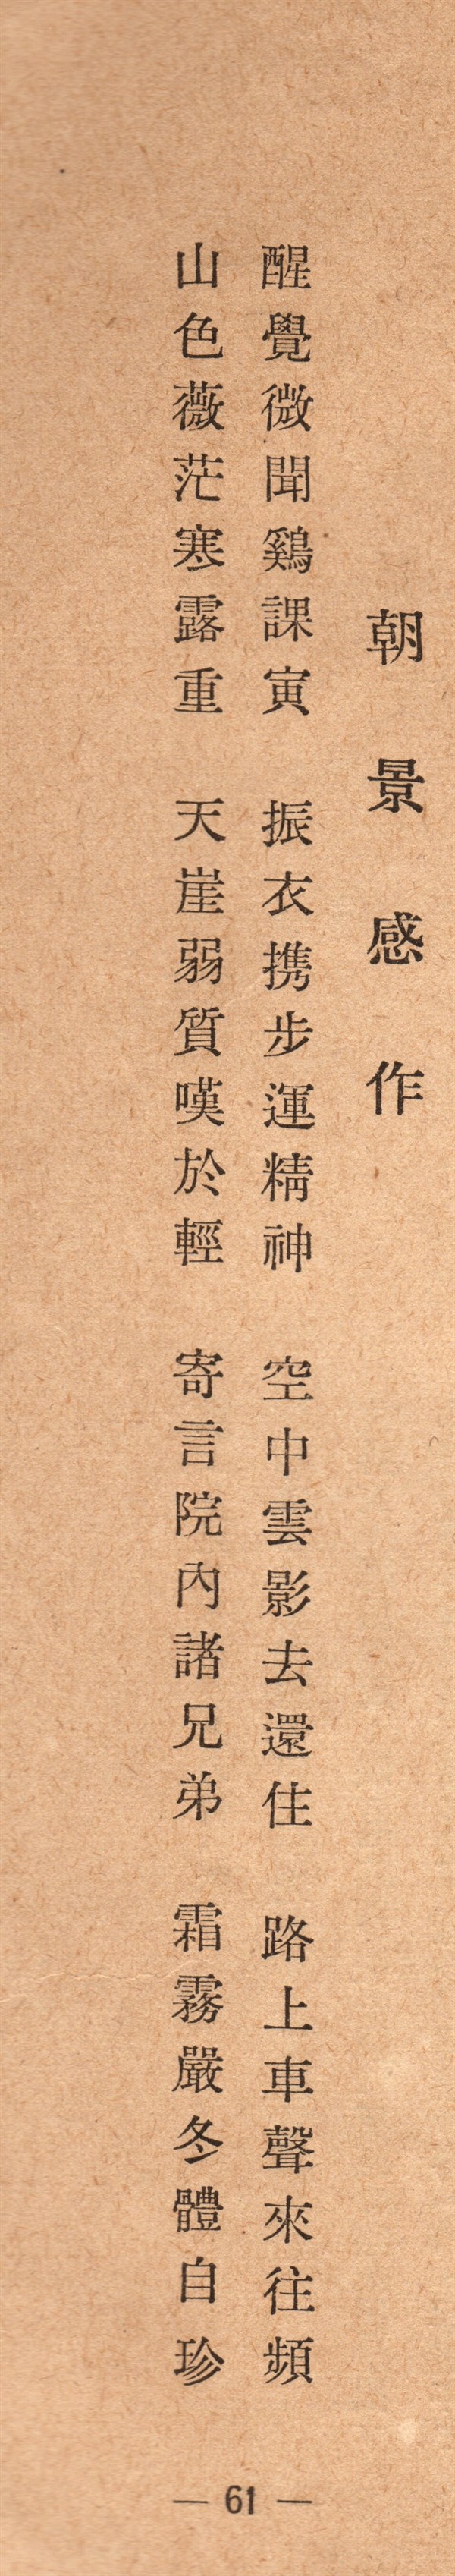 朝景感作
醒覺微聞鷄課寅　振衣携步運精神　空中雲影去還住　路上車聲來往頻
山色薇茫寒露重　天崖弱質嘆於輕　寄言院內諸兄弟　霜霧嚴冬體自珍
— 61 —